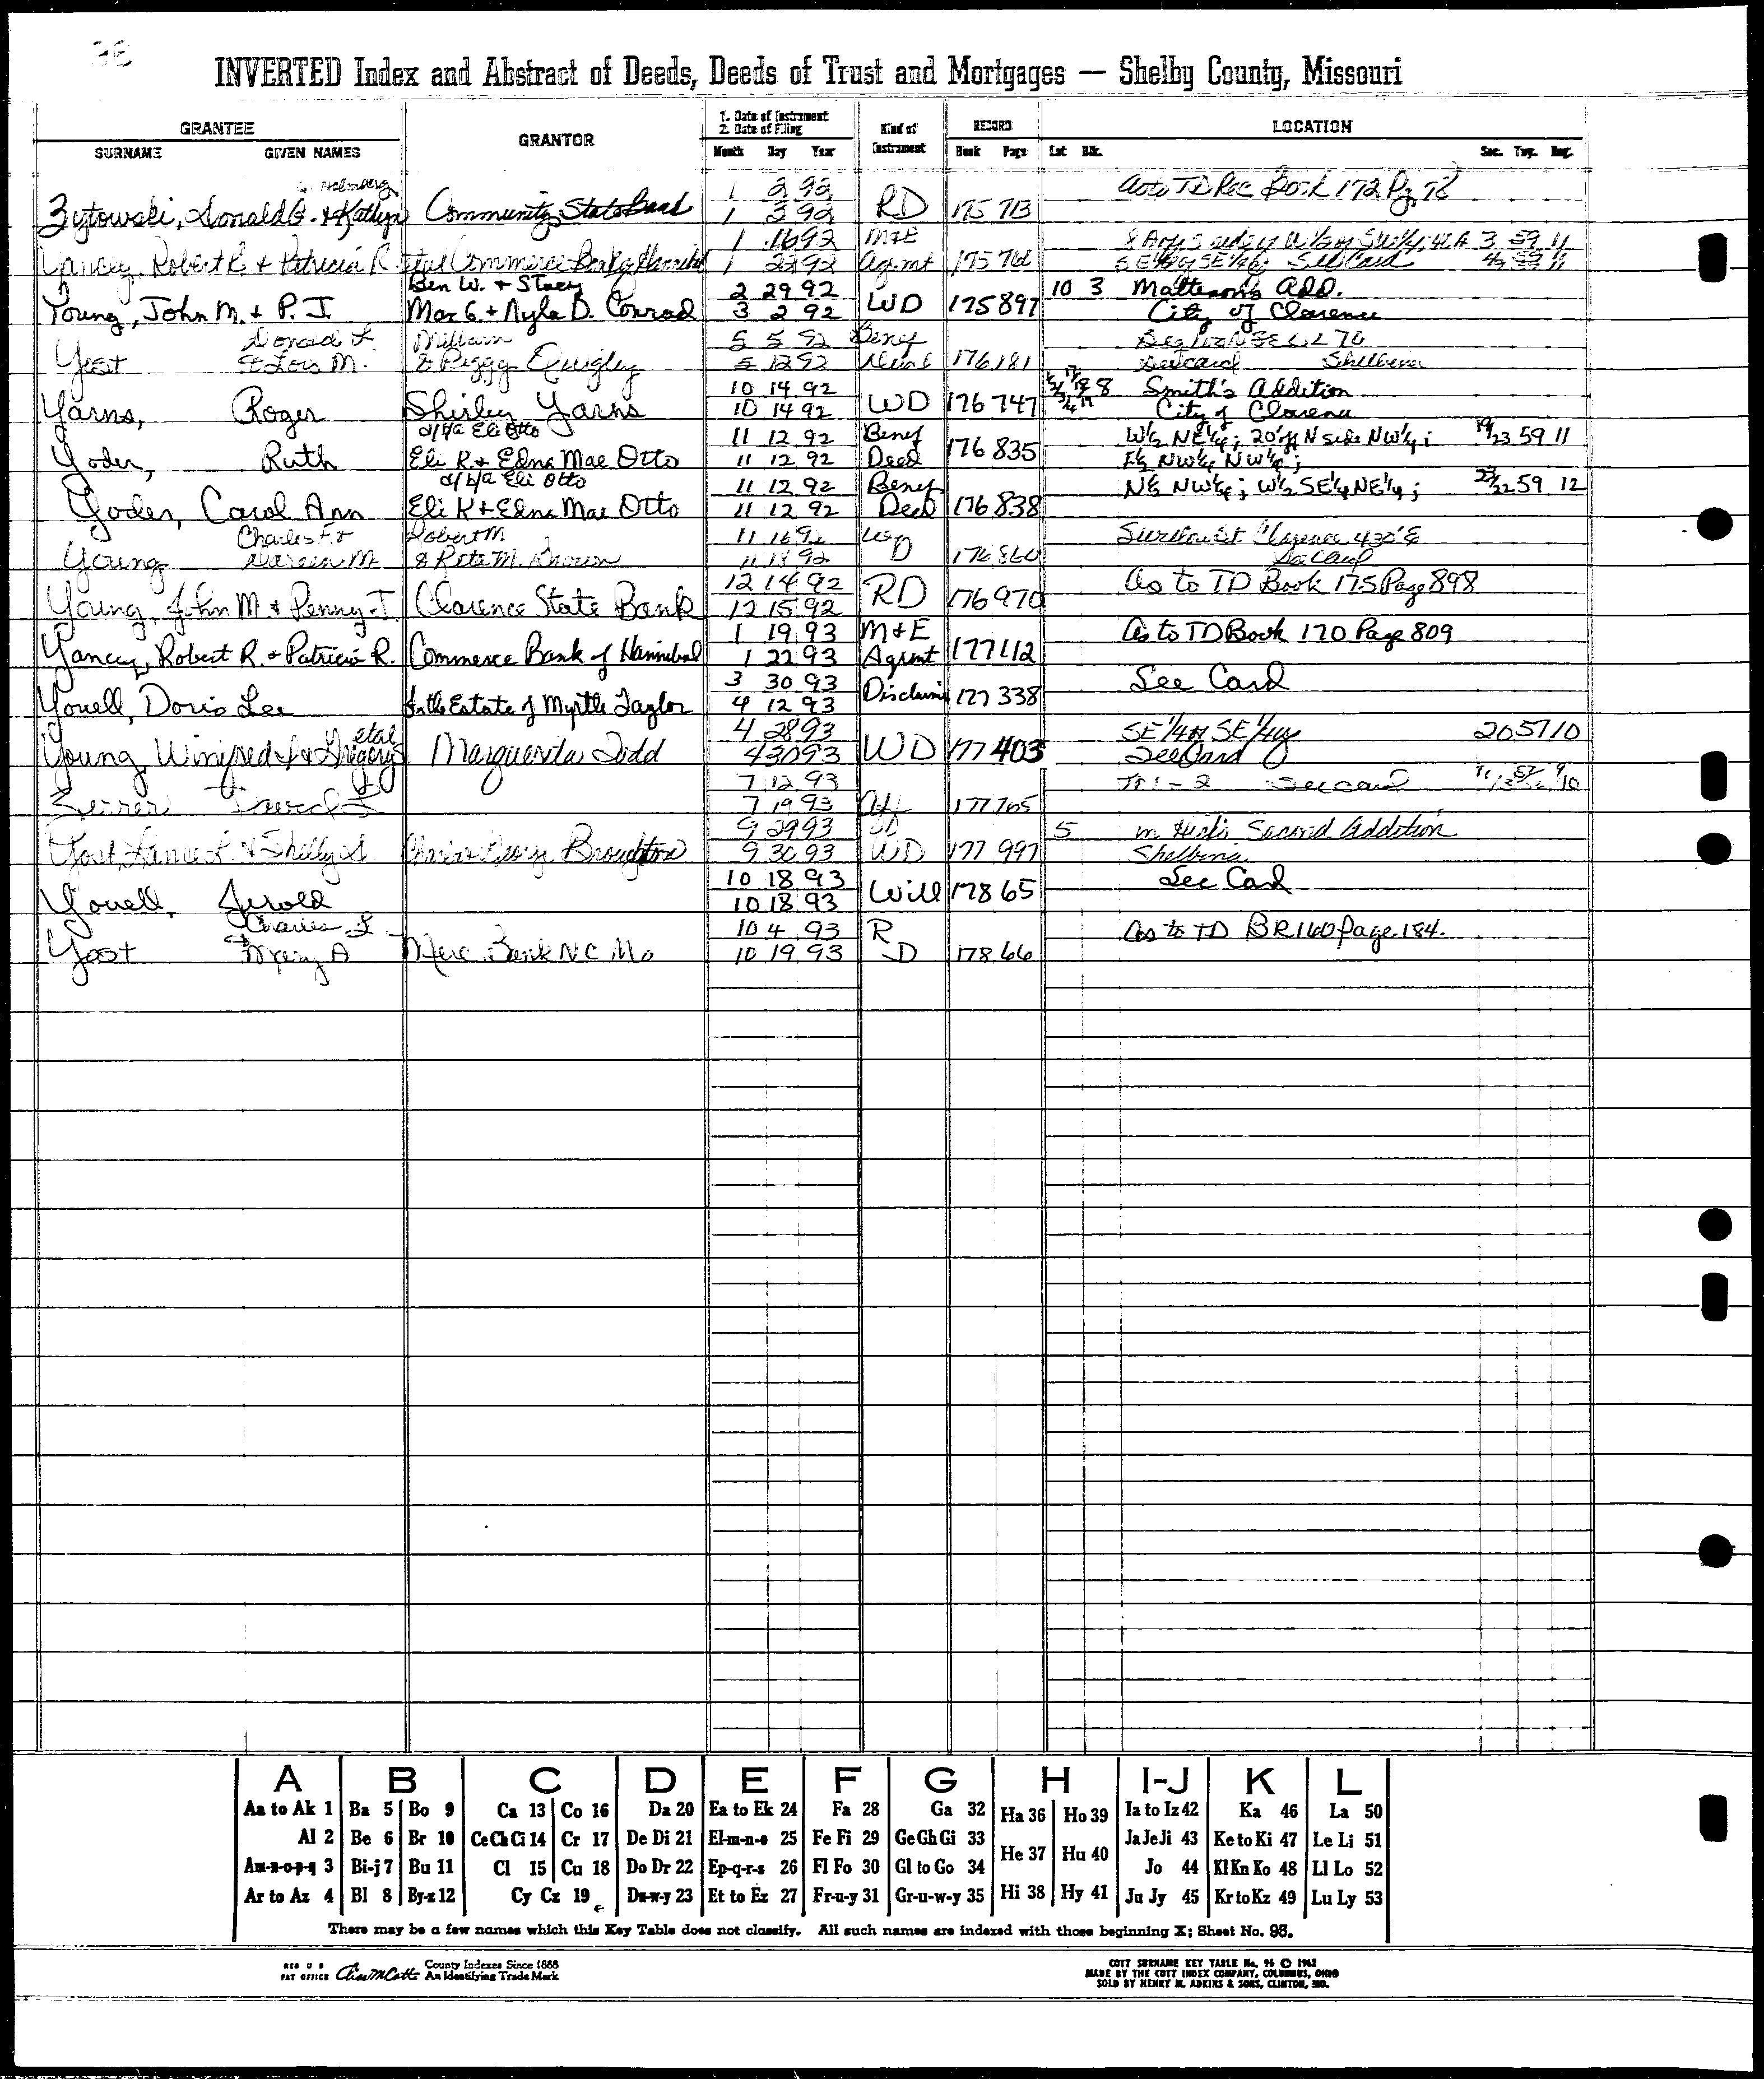 INVERTED Index and Abstract of Deeds, Deeds of Trust and Mortgages — Shelby County, Missouri
GRANTEE GRANTOR 1. Date of Instrument 2. Date of Filing Kind of Instrument RECORD LOCATION
SURNAME GIVEN NAMES Month Day Year Book Page Lot Blk. Sec. Twp. Rng.
1 2 92
Zytowski, Donald G. & Kathryn Community State Bank 1 3 92 RD 175 713
1 16 92 M&E
Yancey, Robert R. & Patricia R. etal Commerce Bank of Hannibal 1 22 92 Agrmt See Card
Ben W. + Stacy 2 29 92 10 3 Matteson's Add.
Young, John M. & P. J. Max G. + Nyla D. Conrad 3 2 92 WD 175 897 City of Clarence
Donald L. William 5 5 92 Benef
Yost & Lois M. & Peggy Quigley 5 12 92 176 181 See card Shelbina
10 14 92 Smith's Addition
Yarns, Roger Shirley Yarns 10 14 92 WD 176 747 City of Clarence
a/k/a Eli Otto 11 12 92 Benef W½ NE¼; 20' off N side NW¼; 19/23 59 11
Yoder, Ruth Eli R. + Edna Mae Otto 11 12 92 Deed 176 835 E½ NW¼ NW¼;
a/k/a Eli Otto 11 12 92 Benef N½ NW¼; W½ SE¼ NE¼; 59 12
Yoder, Carol Ann Eli R + Edna Mae Otto 11 12 92 Deed 176 838
Charles F. & Robert M 11 16 92 W
Young M & Reta M. Brown 11 18 92 D 176 860 See Card
12 14 92 As to TD Book 175 Page 898
Young, John M & Penny J. Clarence State Bank 12 15 92 RD 176 970
1 19 93 M+E As to TD Book 170 Page 809
Yancey, Robert R. & Patricia R. Commerce Bank of Hannibal 1 22 93 Agrmt 177 112
3 30 93 See Card
Youell, Doris Lee In the Estate of Myrtle Taylor 4 12 93 Disclaim 177 338
etal 4 28 93 SE 1/4 of SE 1/4 20 57 10
Young, Winifred L & Gregory Marguerita Todd 4 30 93 WD 177 403 See Card
7 12 93 See card
Zerrer David L 7 19 93 Aff 177 765
9 29 93 5 in Hick's Second Addition
Yost, Lance L. & Shelly S. Charles George Broughton 9 30 93 WD 177 997 Shelbina
10 18 93 See Card
Youell, Jerold 10 18 93 Will 178 65
Charles L 10 4 93 R As to TD BR 160 Page 184.
Yost & Mary A Merc. Bank N C Mo 10 19 93 D 178 66
A B C D E F G H I-J K L
Aa to Ak 1 Ba 5 Bo 9 Ca 13 Co 16 Da 20 Ea to Ek 24 Fa 28 Ga 32 Ha 36 Ho 39 Ia to Iz 42 Ka 46 La 50
Al 2 Be 6 Br 10 Ce Ch Ci 14 Cr 17 De Di 21 El-m-n-o 25 Fe Fi 29 Ge Gh Gi 33 He 37 Hu 40 Ja Je Ji 43 Ke to Ki 47 Le Li 51
Am-n-o-p-q 3 Bi-j 7 Bu 11 Cl 15 Cu 18 Do Dr 22 Ep-q-r-s 26 Fl Fo 30 Gl to Go 34 Jo 44 Kl Kn Ko 48 Ll Lo 52
Ar to Az 4 Bl 8 By-z 12 Cy Cz 19 Du-w-y 23 Et to Ez 27 Fr-u-y 31 Gr-u-w-y 35 Hi 38 Hy 41 Ju Jy 45 Kr to Kz 49 Lu Ly 53
There may be a few names which this Key Table does not classify. All such names are indexed with those beginning X; Sheet No. 96.
REG U S PAT OFFICE County Indexes Since 1888 An Identifying Trade Mark
COTT SURNAME KEY TABLE No. 96 © 1962
MADE BY THE COTT INDEX COMPANY, COLUMBUS, OHIO
SOLD BY HENRY M. ADKINS & SONS, CLINTON, MO.